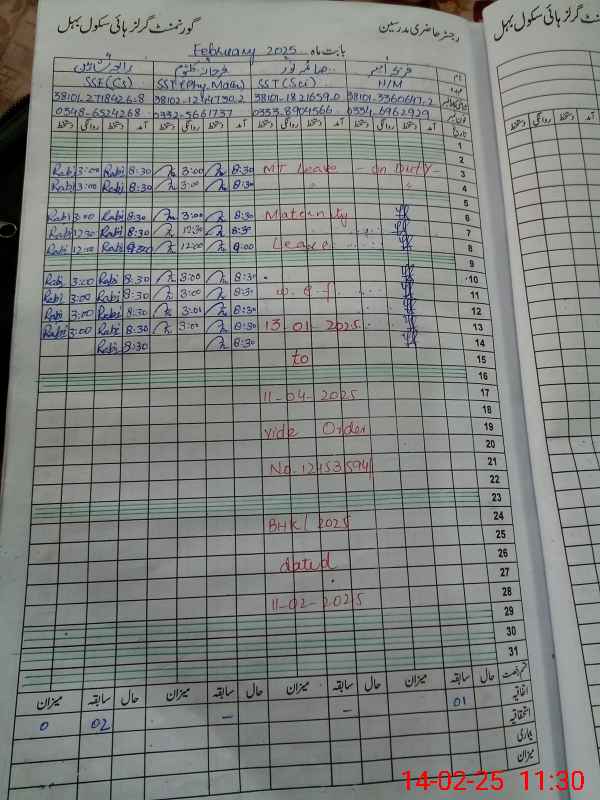 گورنمنٹ گرلز ہائی سکول بہل
رجسٹر حاضری مدرسین
گورنمنٹ گرلز ہائی سکول بہل
February 2025 بابت ماہ
نام
SSE(CS) SST(Phy.Math) SST(Sci) H/M
38101-2718426-8 38102-1214730-2 38101-1821659-0 38101-3360647-2
0348-6524268 0332-5661737 0333-8904566 0334-6962929
آمد دستخط روانگی دستخط آمد دستخط روانگی دستخط آمد دستخط روانگی دستخط آمد دستخط روانگی دستخط
1
2
Rabi 3:00 Rabi 8:30 3:00 8:30 MT Leave - on Duty - 3
Rabi 3:00 Rabi 8:30 3:00 8:30 4
5
Rabi 3:00 Rabi 8:30 3:00 8:30 Maternity 6
Rabi 12:30 Rabi 8:30 12:30 8:30 7
Rabi 12:00 Rabi 12:00 9:00 Leave 8
9
Rabi 3:00 Rabi 8:30 3:00 8:30 10
Rabi 3:00 Rabi 8:30 3:00 8:30 w.e.f 11
Rabi 3:00 Rabi 8:30 3:00 8:30 12
Rabi 3:00 Rabi 8:30 3:00 8:30 13-01-2025 13
Rabi 8:30 8:30 14
to 15
16
11-04-2025 17
18
vide Order 19
20
No. 12453594/ 21
22
23
BHK/2025 24
25
dated 26
27
11-02-2025 28
29
30
31
میزان سابقہ حال میزان سابقہ حال میزان سابقہ حال میزان سابقہ حال قسم رخصت
0 02 - - 01 اتفاقیہ
استحقاقیہ
بیماری
میزان
14-02-25 11:30